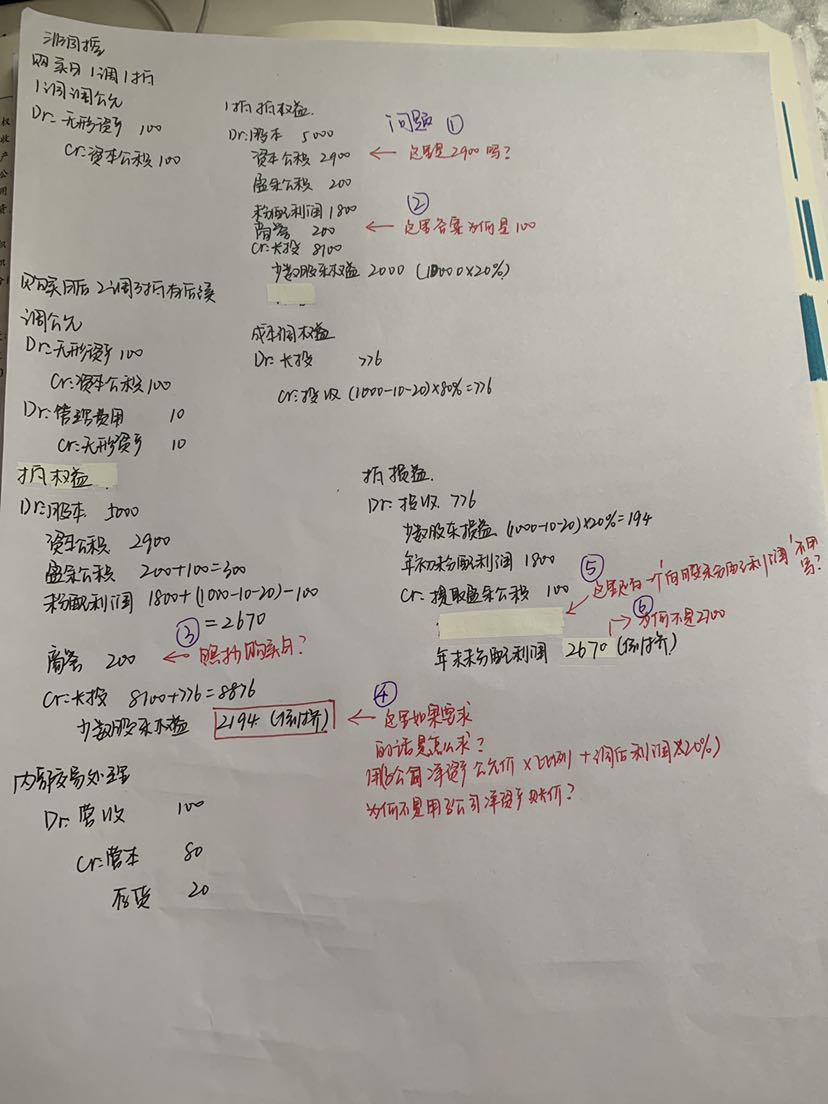 非同控
购买日1调1抵
1调:调公允
Dr:无形资产 100
Cr:资本公积 100
1抵:抵权益.
Dr:股本 5000
资本公积 2900
盈余公积 200
未分配利润 1800
商誉 200
Cr:长投 8100
少数股东权益 2000 (10000×20%)
问题①
← 这里是2900吗?
②
← 这里答案为何是100
购买日后 2调3抵有后续
调公允
Dr:无形资产 100
Cr:资本公积 100
Dr:管理费用 10
Cr:无形资产 10
成本调权益
Dr:长投 776
Cr:投收 (1000-10-20)×80%=776
抵权益
Dr:股本 5000
资本公积 2900
盈余公积 200+100=300
未分配利润 1800+(1000-10-20)-100
=2670
③
商誉 200 ← 照抄购买日?
Cr:长投 8100+776=8876
少数股东权益 2194 (倒挤)
④
← 这里如果要求
的话是怎么求?
用子公司净资产公允价×比例+调后利润×20%)
为何不是用子公司净资产账价?
抵损益.
Dr:投收 776
少数股东损益 (1000-10-20)×20%=194
年初未分配利润 1800
Cr:提取盈余公积 100
⑤
← 这里还有一个"向股东分配利润"不用写?
⑥
为何不是2700
年末未分配利润 2670 (倒挤)
内部交易处理
Dr:营收 100
Cr:营本 80
存货 20